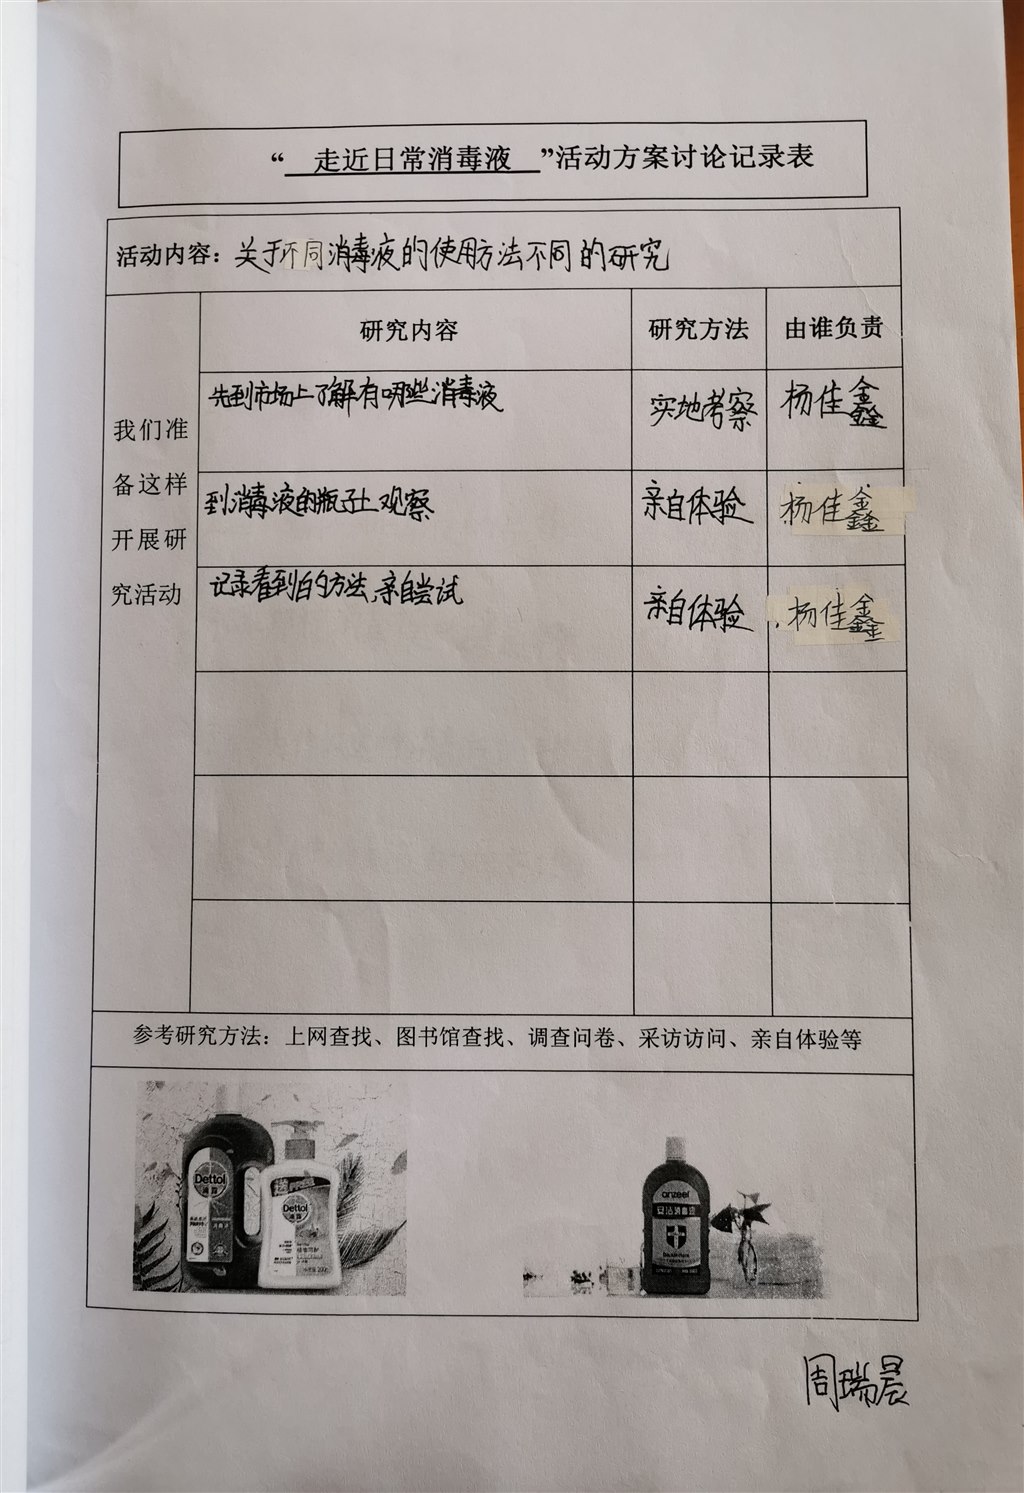 “ 走近日常消毒液 ”活动方案讨论记录表
活动内容：关于不同消毒液的使用方法不同的研究
研究内容 研究方法 由谁负责
我们准
备这样
开展研
究活动
先到市场上了解有哪些消毒液 实地考察 杨佳鑫
到消毒液的瓶子上观察 亲自体验 杨佳鑫
记录看到的方法,亲自尝试 亲自体验 杨佳鑫
参考研究方法：上网查找、图书馆查找、调查问卷、采访访问、亲自体验等
Dettol
滴露
Dettol
滴露
anzeel
安洁消毒液
周瑞晨